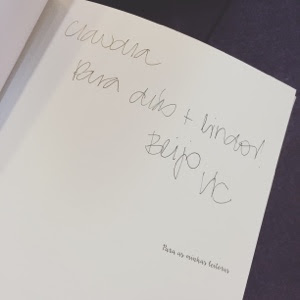 Claudia
Para dias + lindos!
Beijo
Vic
Para as minhas leitoras